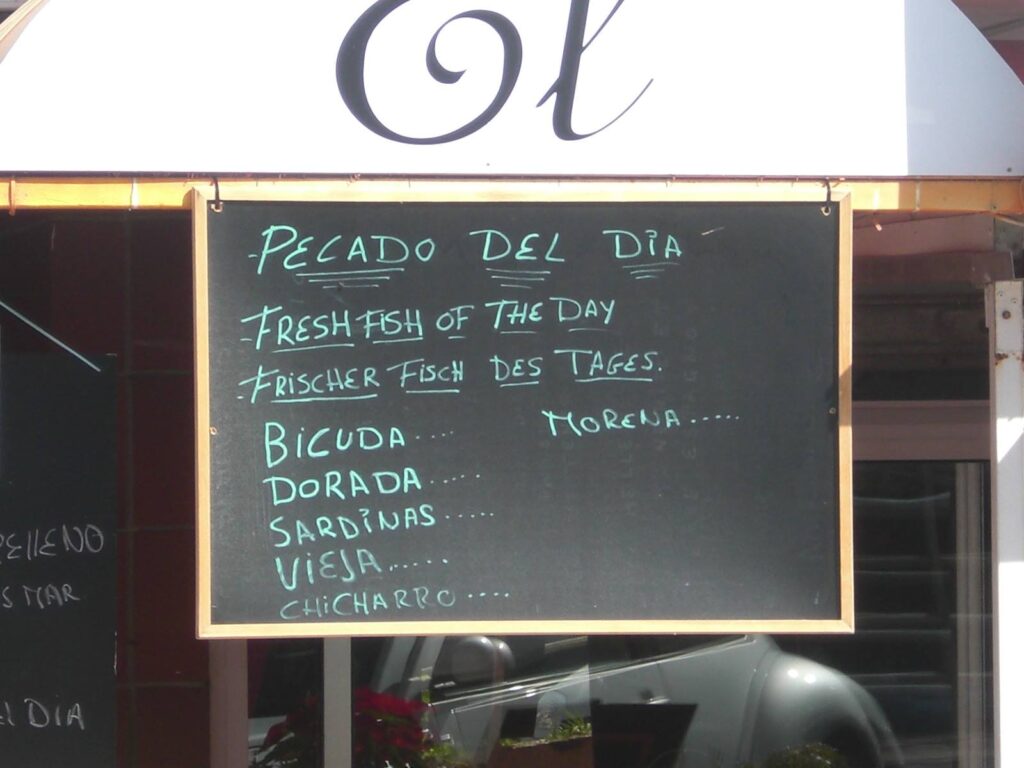 El
-PECADO DEL DIA
-FRESH FISH OF THE DAY
-FRISCHER FISCH DES TAGES.
BICUDA ....
MORENA .....
DORADA .....
SARDINAS .....
VIEJA ......
CHICHARRO ....
RELLENO
S MAR
El DIA